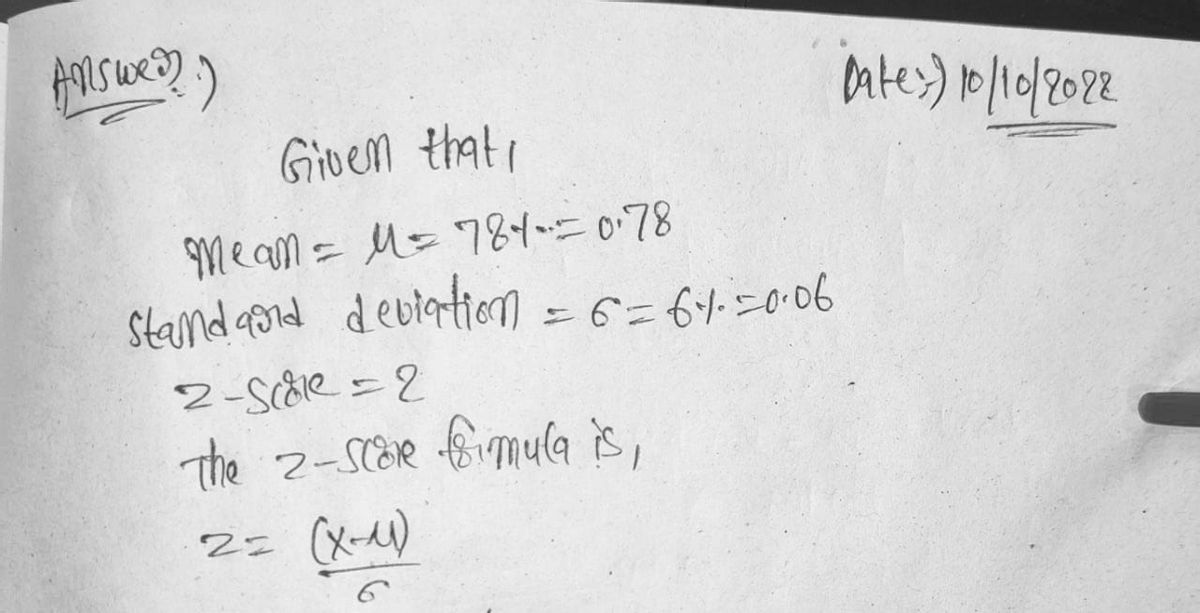 Answer :)
Date:-) 10/10/2022
Given that,
Mean = μ = 78% = 0.78
standard deviation = σ = 6% = 0.06
z-score = 2
The z-score formula is,
z = (x-μ)
σ